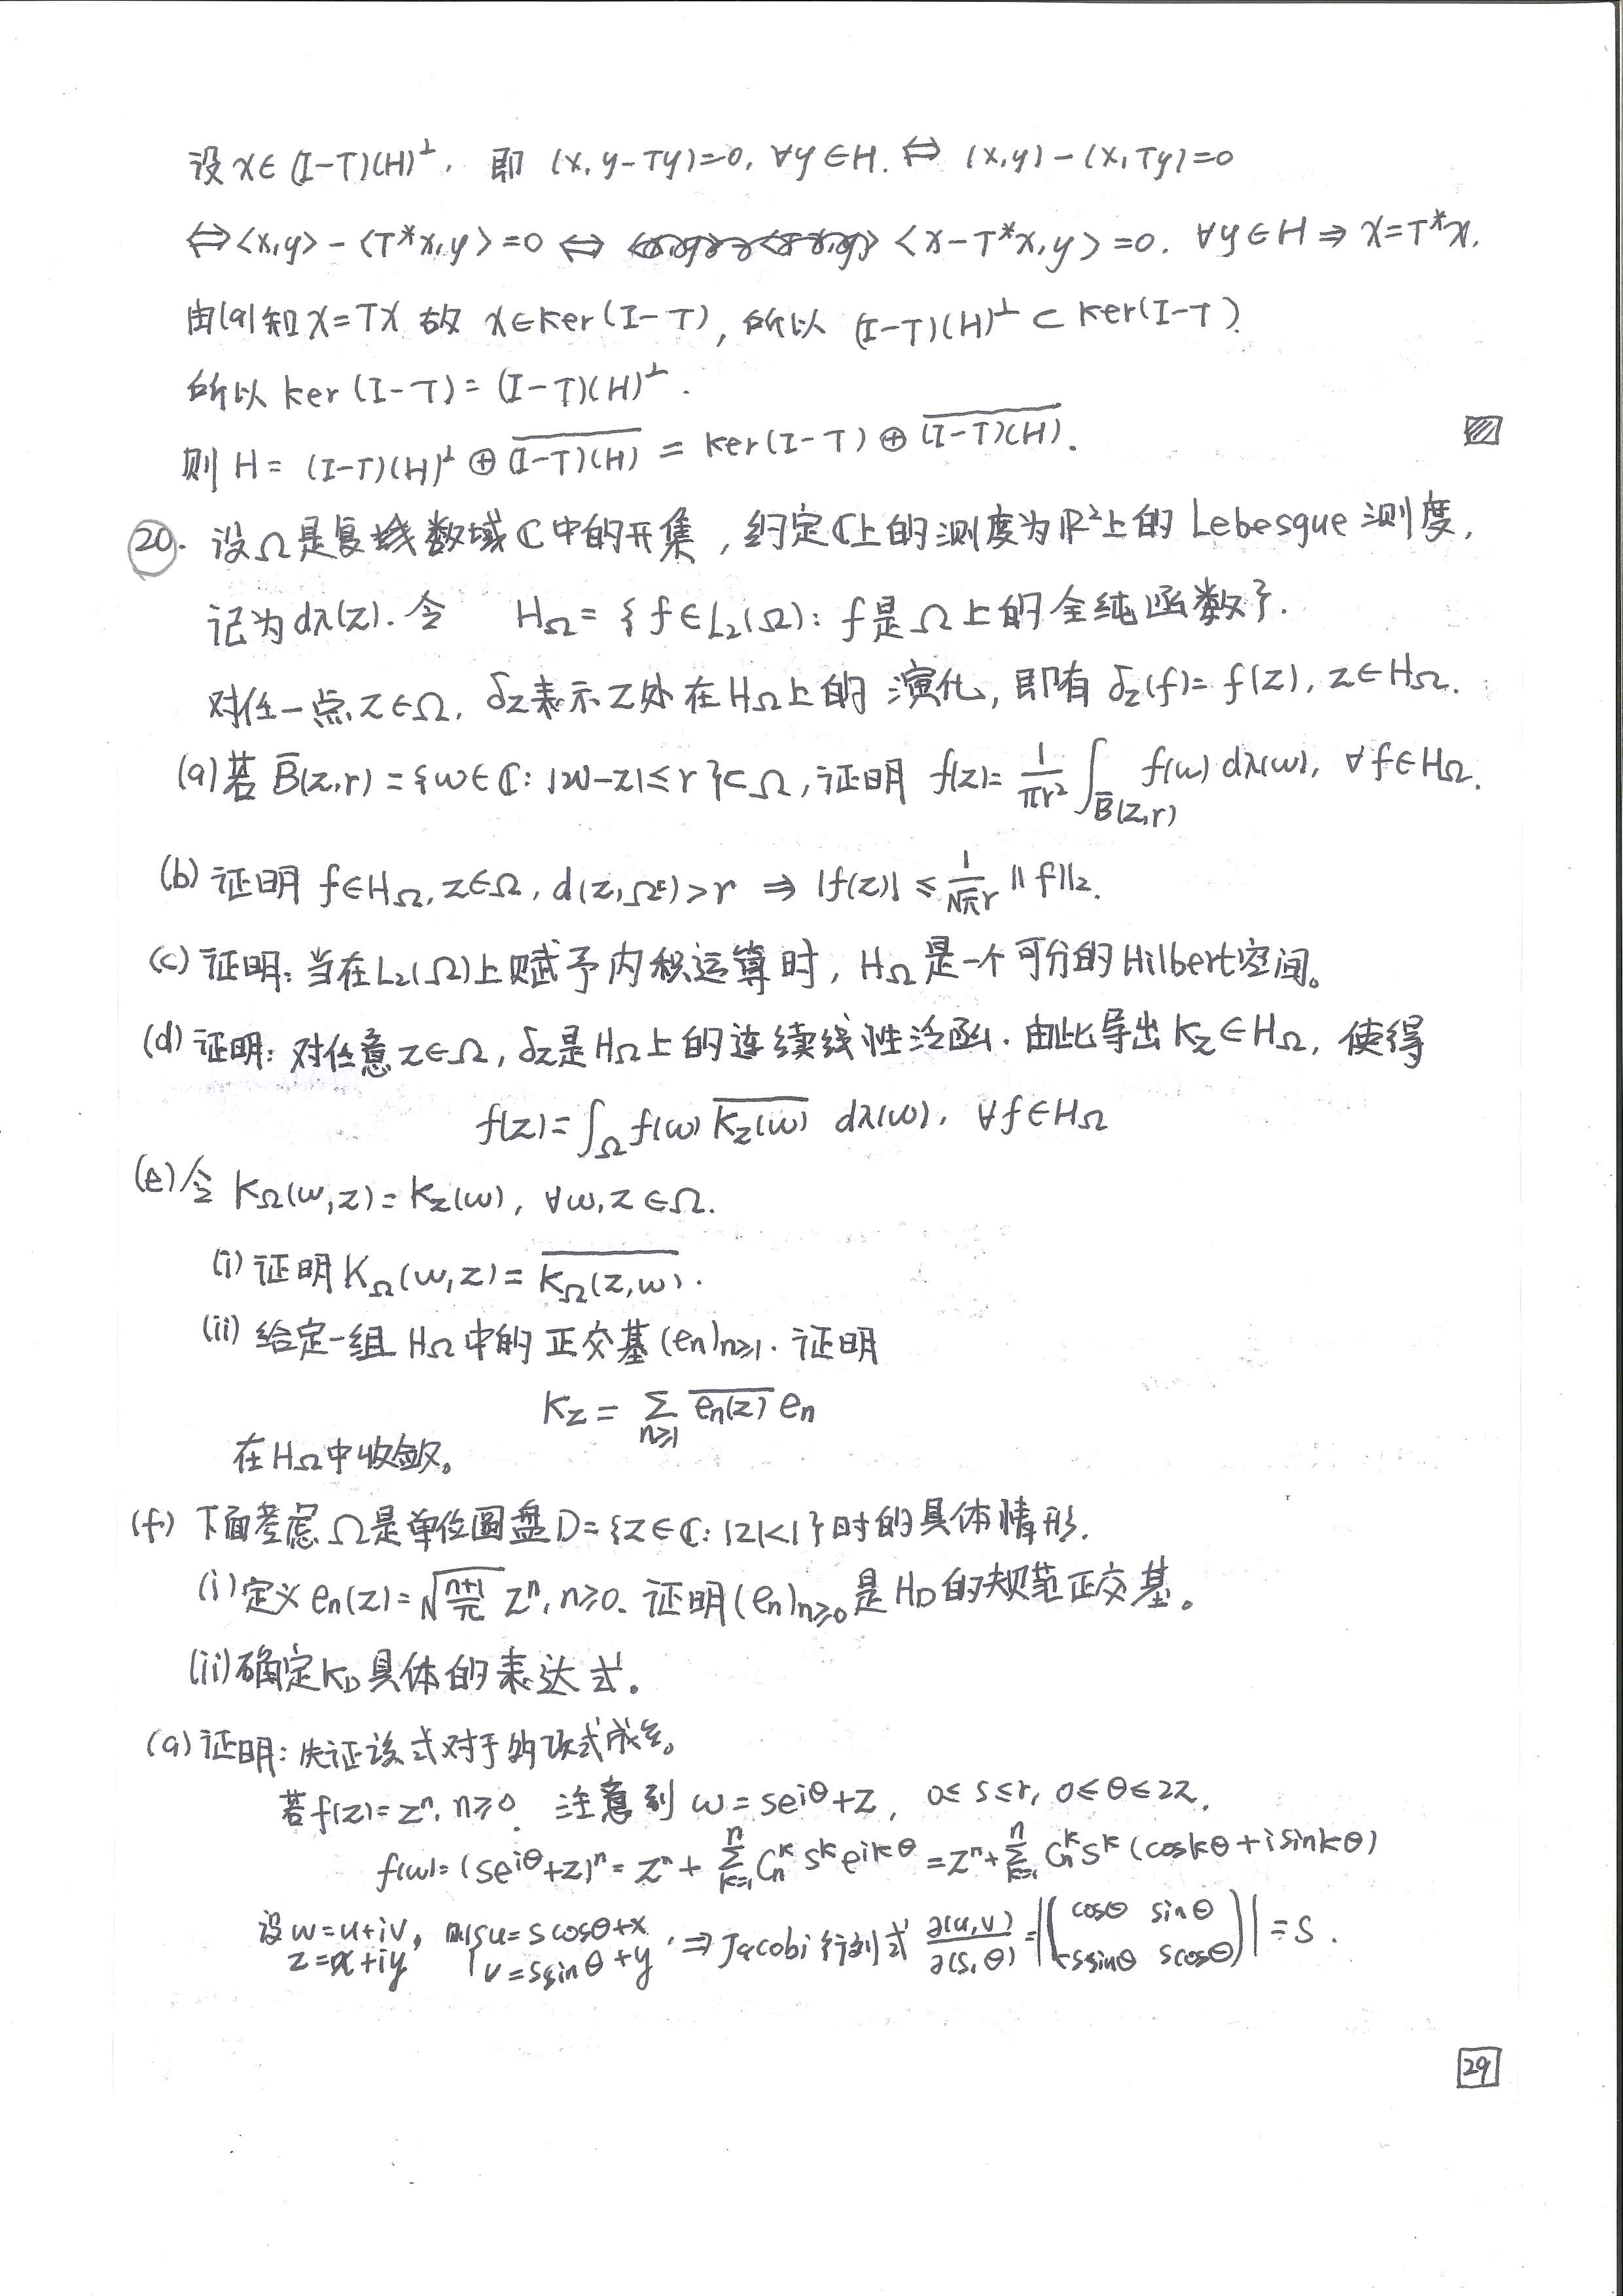 设 x∈(I-T)(H)^⊥, 即 (x, y-Ty)=0, ∀y∈H. ⇔ (x,y)-(x,Ty)=0
⇔ <x,y> - <T*x,y> =0 ⇔ <x-T*x,y> =0. ∀y∈H ⇒ x=T*x.
由(a)知 x=Tx 故 x∈ker(I-T), 所以 (I-T)(H)^⊥ ⊂ ker(I-T).
所以 ker(I-T)=(I-T)(H)^⊥.
则 H= (I-T)(H)^⊥ ⊕ \overline{(I-T)(H)} = ker(I-T) ⊕ \overline{(I-T)(H)}.
20. 设Ω是复数域ℂ中的开集, 约定ℂ上的测度为ℝ²上的 Lebesgue 测度,
记为dλ(z). 令 H_Ω={f∈L₂(Ω): f是Ω上的全纯函数}.
对任一点z∈Ω, δ_z表示z处在H_Ω上的演化, 即有 δ_z(f)=f(z), z∈H_Ω.
(a) 若 \bar{B}(z,r)={w∈ℂ: |w-z|≤r}⊂Ω, 证明 f(z)=\frac{1}{πr²}∫_{\bar{B}(z,r)} f(w) dλ(w), ∀f∈H_Ω.
(b) 证明 f∈H_Ω, z∈Ω, d(z,Ω^c)>r ⇒ |f(z)| ≤ \frac{1}{\sqrt{π}r} ||f||₂.
(c) 证明: 当在L₂(Ω)上赋予内积运算时, H_Ω是一个可分的Hilbert空间。
(d) 证明: 对任意z∈Ω, δ_z是H_Ω上的连续线性泛函. 由此导出 K_z∈H_Ω, 使得
f(z)=∫_Ω f(w) \overline{K_z(w)} dλ(w), ∀f∈H_Ω
(e) 令 K_Ω(w,z)=K_z(w), ∀w,z∈Ω.
(i) 证明 K_Ω(w,z)=\overline{K_Ω(z,w)}.
(ii) 给定一组 H_Ω中的正交基(e_n)_{n≥1}. 证明
K_z = \sum_{n≥1} \overline{e_n(z)} e_n
在H_Ω中收敛。
(f) 下面考虑Ω是单位圆盘D={z∈ℂ: |z|<1}时的具体情形.
(i) 定义 e_n(z)=\sqrt{\frac{n+1}{π}} z^n, n≥0. 证明(e_n)_{n≥0}是H_D的规范正交基。
(ii) 确定K_D具体的表达式.
(a) 证明: 先证该式对于多项式成立。
若f(z)=z^n, n≥0. 注意到 w=se^{iθ}+z, 0≤s≤r, 0≤θ≤2π,
f(w)=(se^{iθ}+z)^n = z^n + \sum_{k=1}^{n} C_n^k s^k e^{ikθ} = z^n + \sum_{k=1}^{n} C_n^k s^k (cos kθ + i sin kθ)
设 w=u+iv, z=x+iy 则 { u=s cosθ+x, v=s sinθ+y. ⇒ Jacobi 行列式 \frac{∂(u,v)}{∂(s,θ)} = |( cosθ sinθ ; -s sinθ s cosθ )| = s.
29